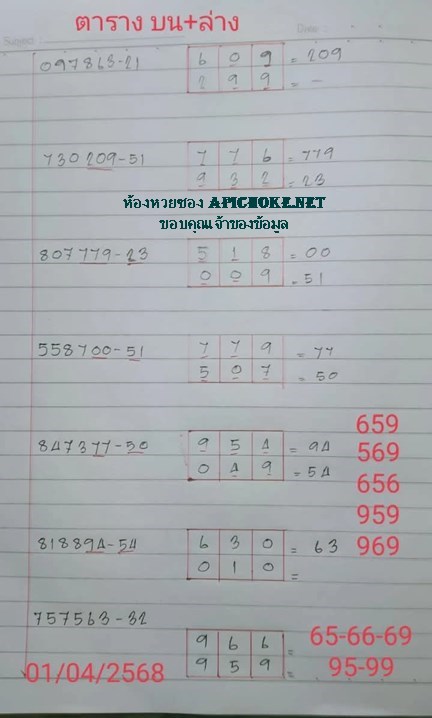 ตาราง บน+ล่าง
Subject
Date
097863-21 6 0 9 = 209
2 9 9 = -
730209-51 7 7 6 = 779
9 3 2 = 23
ห้องหวยซอง APICHOKE.NET
ขอบคุณเจ้าของข้อมูล
807779-23 5 1 8 = 00
0 0 9 = 51
558700-51 7 7 9 = 77
5 0 7 = 50
847377-50 9 5 4 = 94
0 4 9 = 54
659
569
656
959
969
818894-54 6 3 0 = 63
0 1 0 =
757563-32
9 6 6 =
9 5 9 =
65-66-69
95-99
01/04/2568